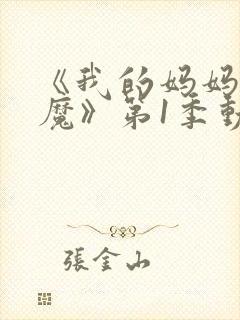 《我的妈妈
魔》第1季動
張金山